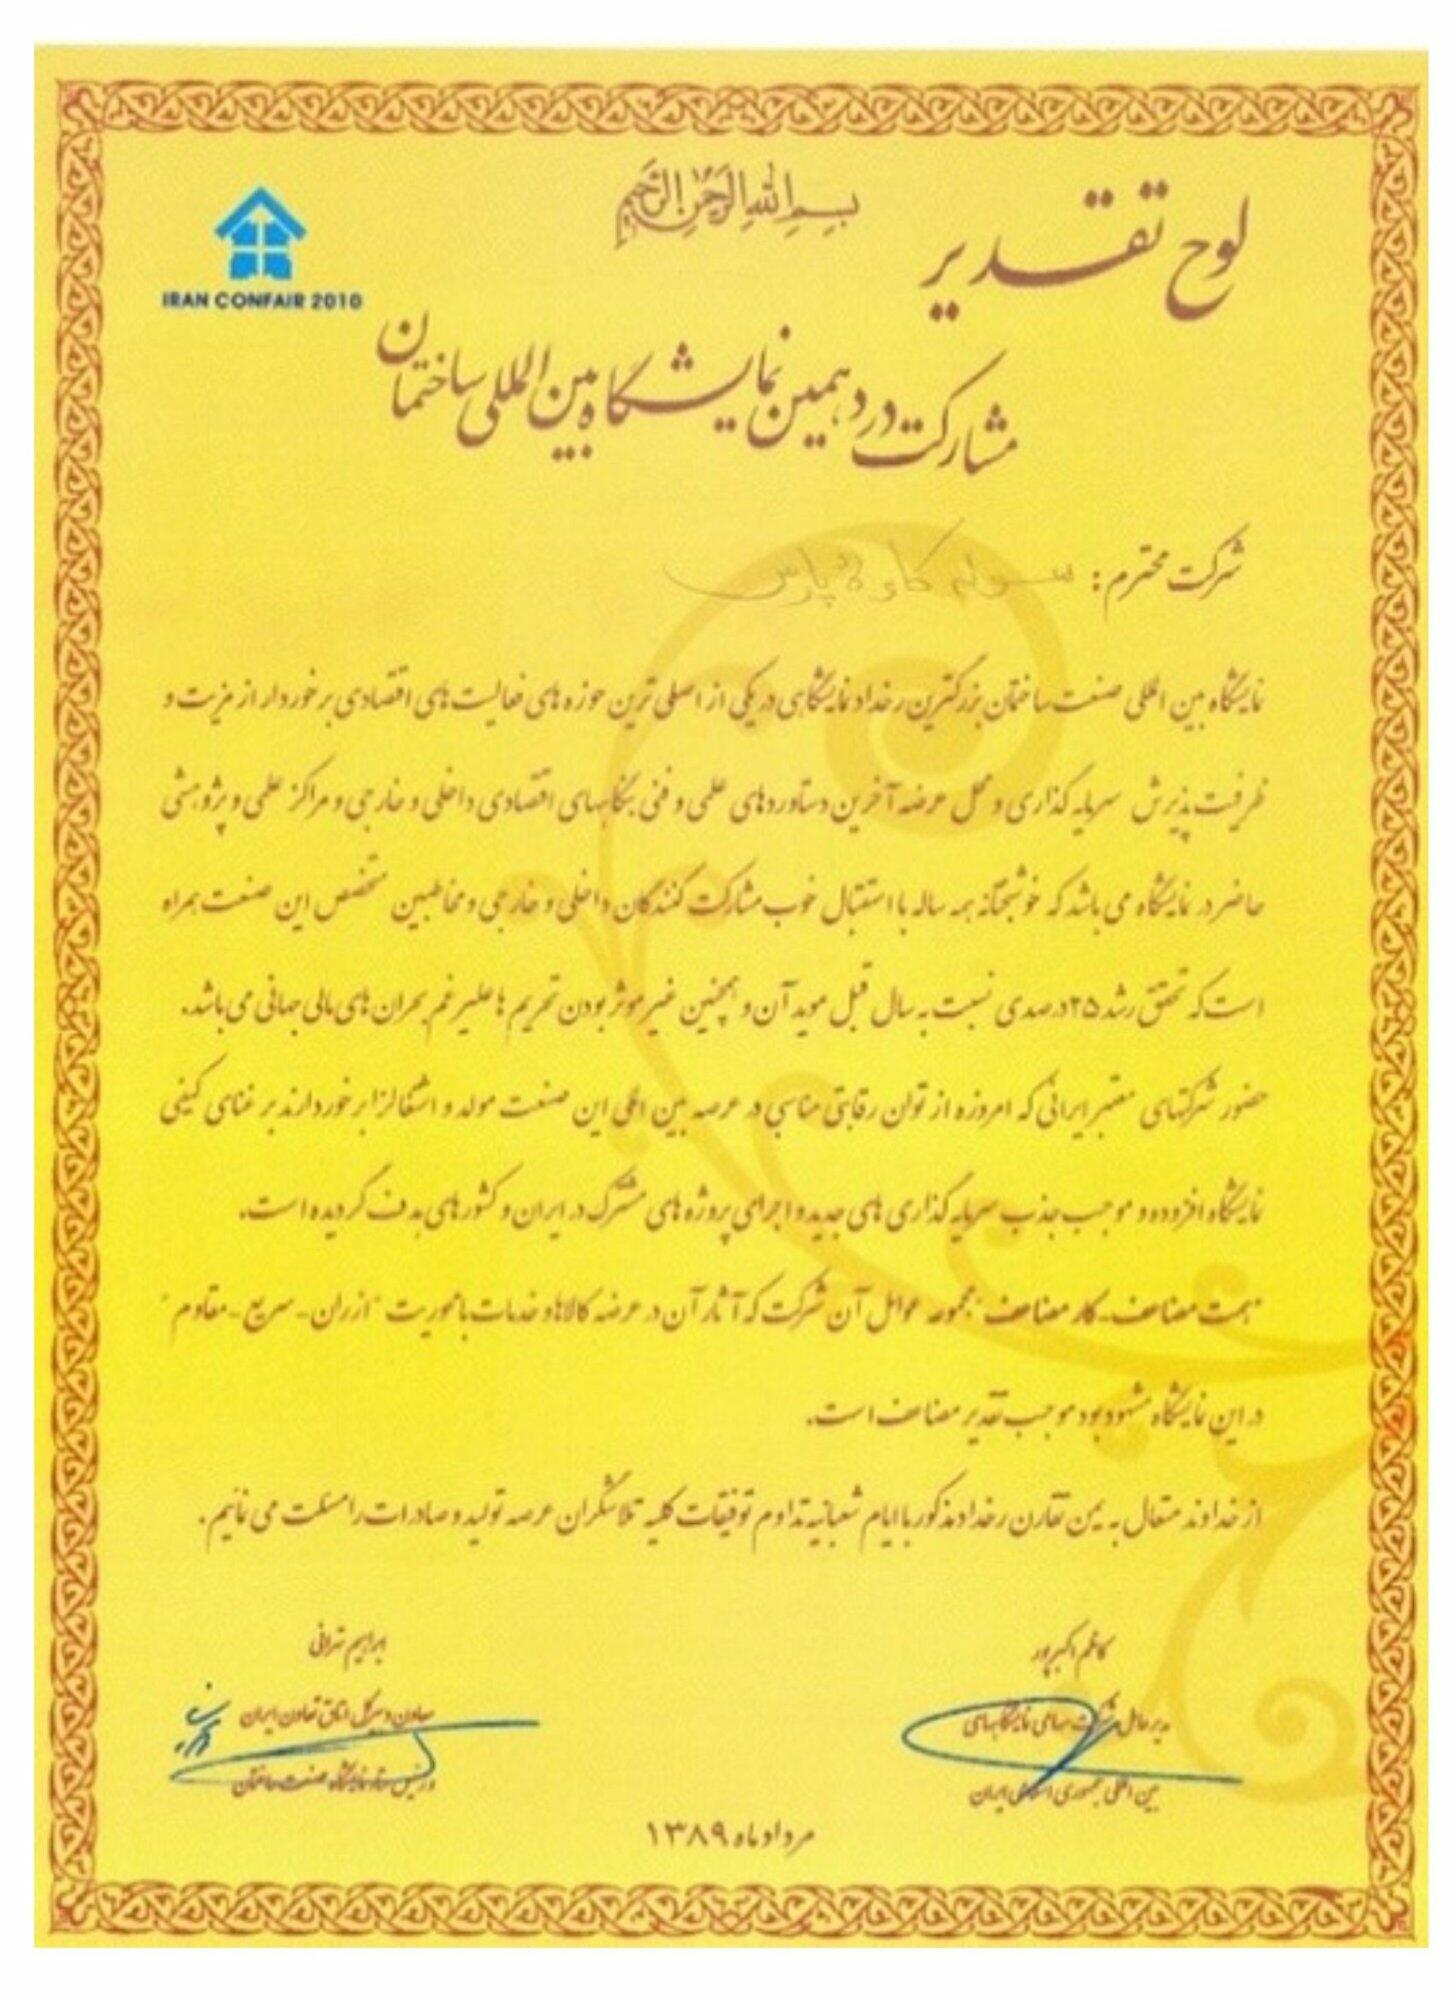 بسم الله الرحمن الرحیم
لوح تقدیر
IRAN CONFAIR 2010
مشارکت در دهمین نمایشگاه بین المللی ساختمان
شرکت محترم : سوله کاوه پارس
نمایشگاه بین المللی صنعت ساختمان بزرگترین رخداد نمایشگاهی در یکی از اصلی ترین حوزه های فعالیت های اقتصادی برخوردار از مزیت و
ظرفیت پذیرش سرمایه گذاری و محل عرضه آخرین دستاوردهای علمی و فنی بنگاههای اقتصادی داخلی و خارجی و مراکز علمی و پژوهشی
حاضر در نمایشگاه می باشد که خوشبختانه همه ساله با استقبال خوب مشارکت کنندگان داخلی و خارجی و مخاطبین متخصص این صنعت همراه
است که تحقق رشد ۲۵درصدی نسبت به سال قبل موید آن و همچنین غیر موثر بودن تحریم ها علیرغم بحران های مالی جهانی می باشد.
حضور شرکتهای معتبر ایرانی که امروزه از توان رقابتی مناسبی در عرصه بین المللی این صنعت مولد و اشتغالزا برخوردارند بر غنای کیفی
نمایشگاه افزوده و موجب جذب سرمایه گذاری های جدید و اجرای پروژه های مشترک در ایران و کشورهای هدف گردیده است.
"همت مضاعف-کار مضاعف" مجموعه عوامل آن شرکت که آثار آن در عرضه کالاها و خدمات با محوریت "ارزان-سریع-مقاوم"
در این نمایشگاه مشهود بود موجب تقدیر مضاعف است.
از خداوند متعال به یمن تقارن رخداد مذکور با ایام شعبانیه تداوم توفیقات کلیه تلاشگران عرصه تولید و صادرات را مسئلت می نمائیم.
کاظم اکبرپور
مدیرعامل شرکت سهامی نمایشگاههای
بین المللی جمهوری اسلامی ایران
ابراهیم ترقی
معاون دبیرکل اتاق تعاون ایران
و رئیس ستاد نمایشگاه صنعت ساختمان
مرداد ماه ۱۳۸۹